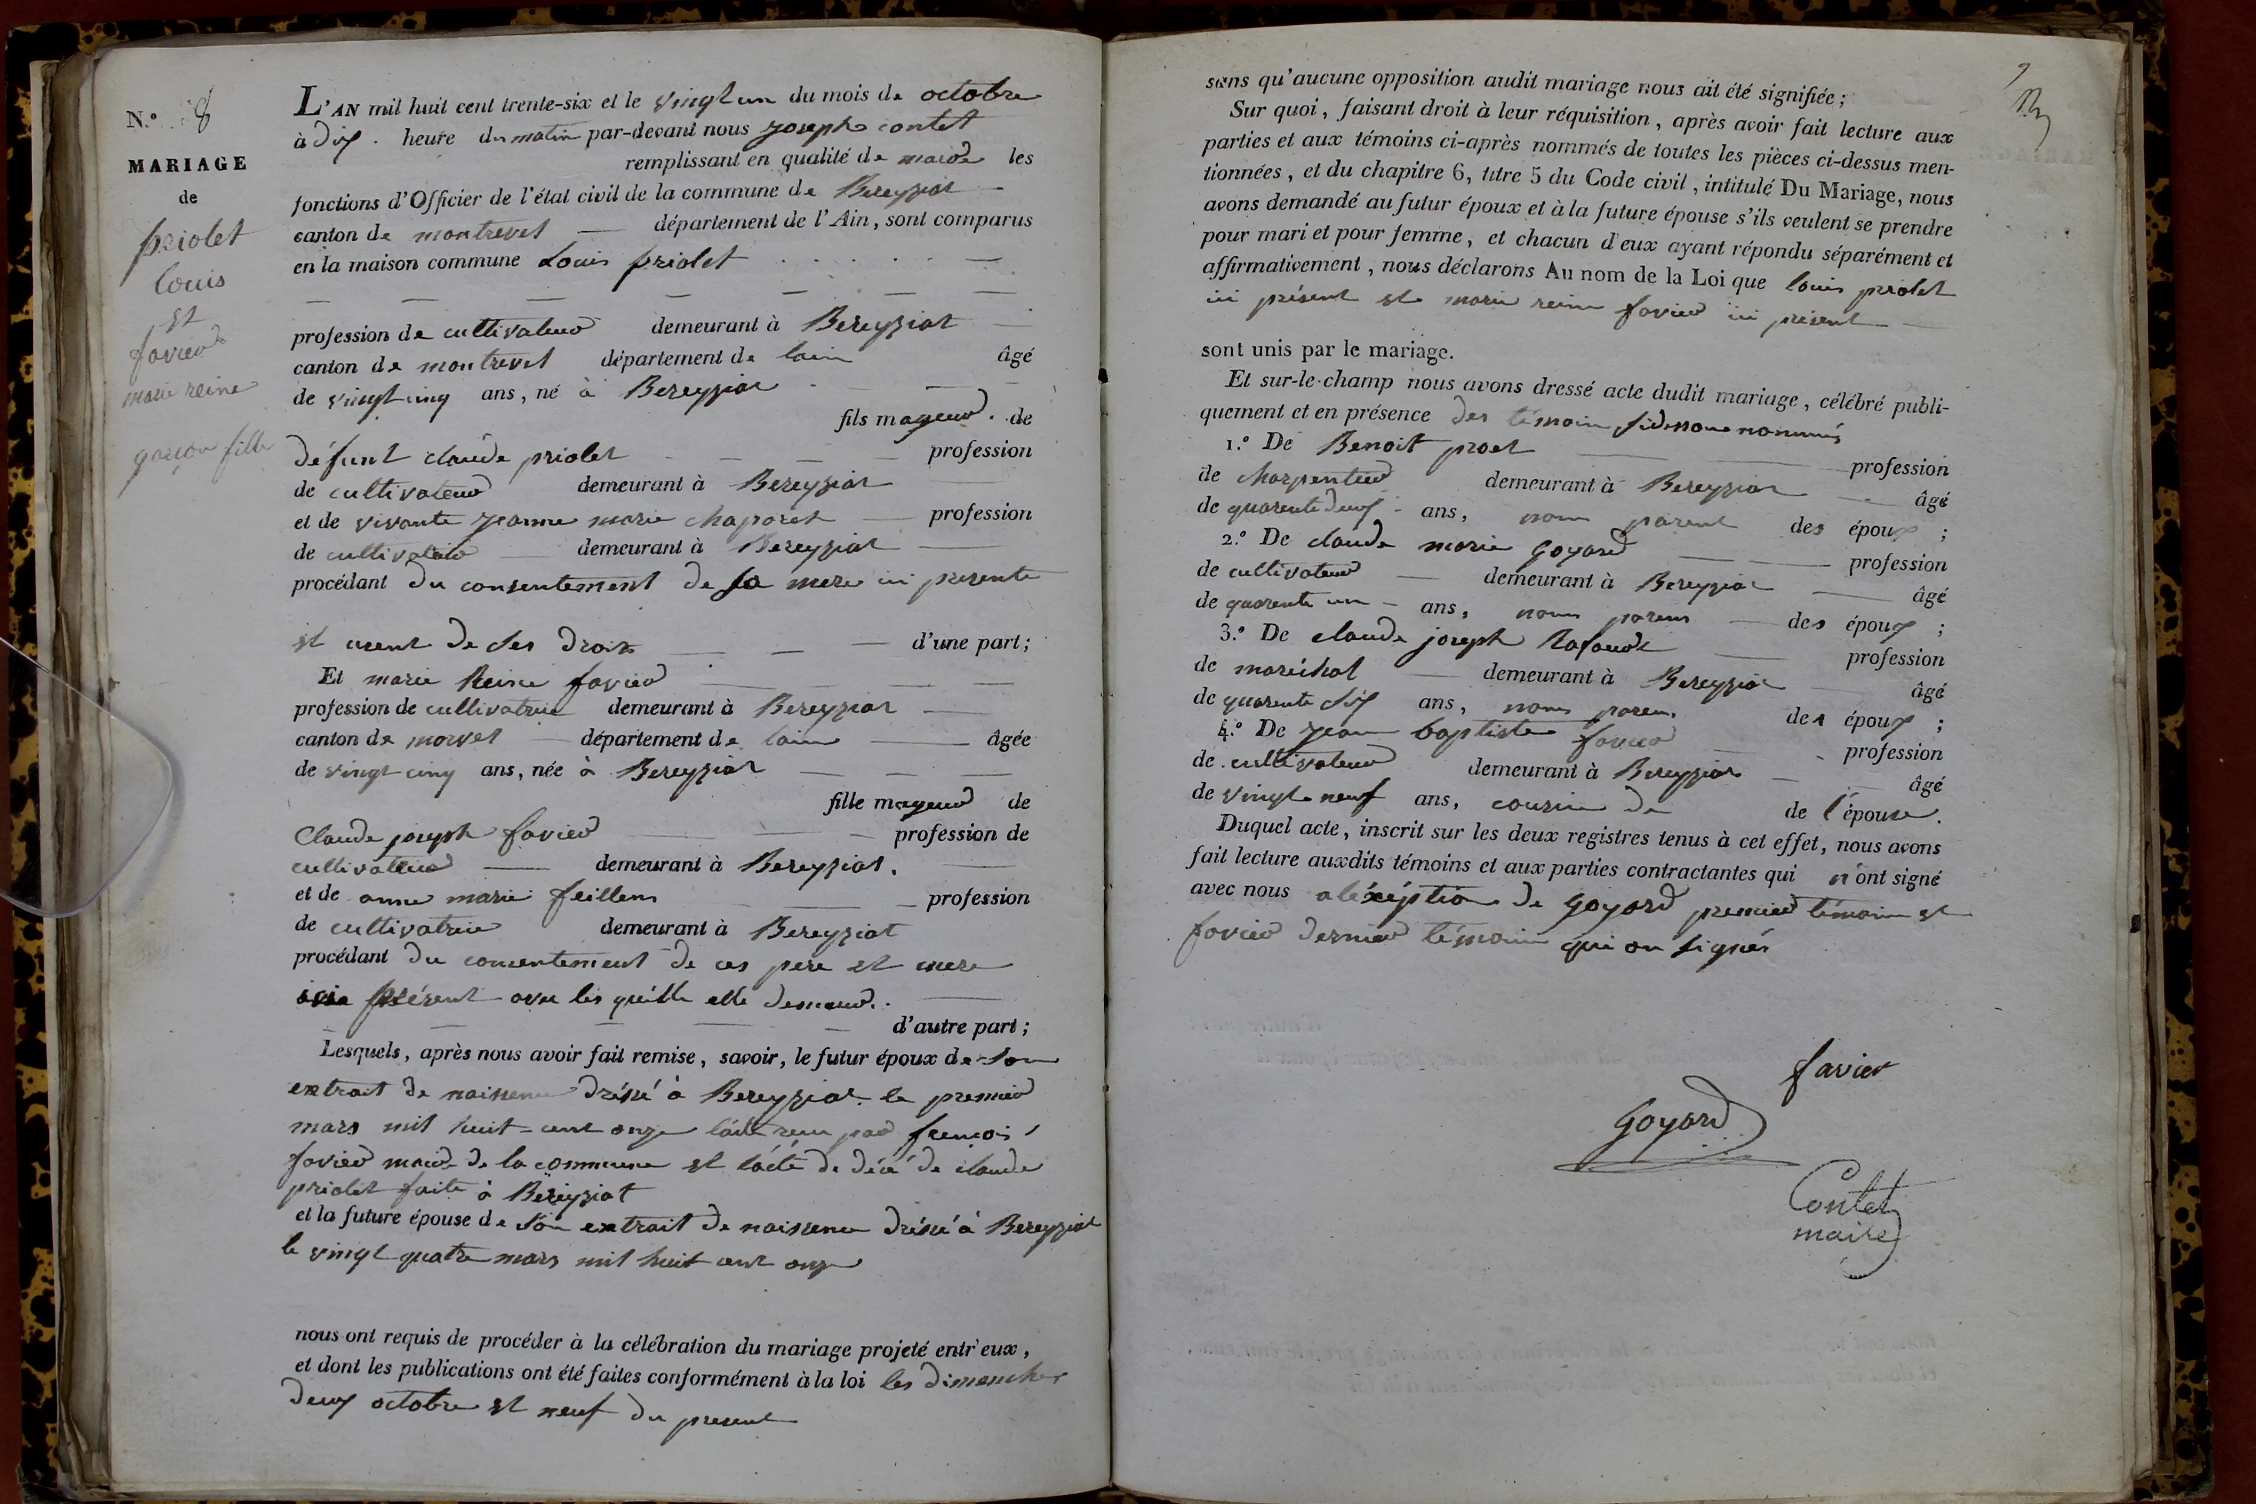 N.º 8
MARIAGE
de
priolet
louis
et
favier
marie reine
garçon fille
L'AN mil huit cent trente-six et le vingt un du mois de octobre
à dix heure du matin par-devant nous joseph contet
remplissant en qualité de maire les
fonctions d'Officier de l'état civil de la commune de Bereyziat
canton de montrevel département de l'Ain, sont comparus
en la maison commune Louis priolet
profession de cultivateur demeurant à Bereyziat
canton de montrevel département de lain âgé
de vingt cinq ans, né à Bereyziat
fils mageur de
défunt claude priolet profession
de cultivateur demeurant à Bereyziat
et de vivante jeanne marie chaparet profession
de demeurant à Bereyziat
procédant du consentement de sa mere ici presente
et usent de ses droits d'une part;
Et marie Reine favier
profession de cultivatrice demeurant à Bereyziat
canton de département de lain âgée
de vingt cinq ans, née à Bereyziat
fille mageur de
Claude joseph favier profession de
cultivateur demeurant à Bereyziat.
et de anne marie feillens profession
de cultivatrice demeurant à Bereyziat
procédant du consentement de ces pere et mere
présent avec les quelle elle demeure.
d'autre part;
Lesquels, après nous avoir fait remise, savoir, le futur époux de son
extrait de naissence dréssé à Bereyziat le premier
mars mil huit cent onze par francois
favier maire de la commune et lacte de décé de claude
priolet faite à Béreyziat
et la future épouse de son extrait de naissence dréssé à Bereyziat
le vingt quatre mars mil huit cent onze
nous ont requis de procéder à la célébration du mariage projeté entr'eux,
et dont les publications ont été faites conformément à la loi les dimenches
deux octobre et neuf du present
sans qu'aucune opposition audit mariage nous ait été signifiée;
Sur quoi, faisant droit à leur réquisition, après avoir fait lecture aux
parties et aux témoins ci-après nommés de toutes les pièces ci-dessus men-
tionnées, et du chapitre 6, titre 5 du Code civil, intitulé Du Mariage, nous
avons demandé au futur époux et à la future épouse s'ils veulent se prendre
pour mari et pour femme, et chacun d'eux ayant répondu séparément et
affirmativement, nous déclarons Au nom de la Loi que louis priolet
ici présent et marie reine favier ici présent
sont unis par le mariage.
Et sur-le-champ nous avons dressé acte dudit mariage, célébré publi-
quement et en présence des témoin nommés
1.º De Benoit proet profession
de charpentier demeurant à Bereyziat âgé
de quarente deux ans, non parent des époux;
2.º De claude marie goyard profession
de cultivateur demeurant à Bereyziat âgé
de quarente un ans, non parens des époux;
3.º De claude joseph Rafoudt profession
de maréchal demeurant à Bereyziat âgé
de quarente dix ans, non paren des époux;
4.º De jean baptiste favier profession
de cultivateur demeurant à Bereyziat âgé
de vingt neuf ans, cousin de de l'épouse.
Duquel acte, inscrit sur les deux registres tenus à cet effet, nous avons
fait lecture auxdits témoins et aux parties contractantes qui n'ont signé
avec nous a léxéption de goyard premier témoin et
favier dernier témoin qui on signés
favier
Goyard
Contet
maire